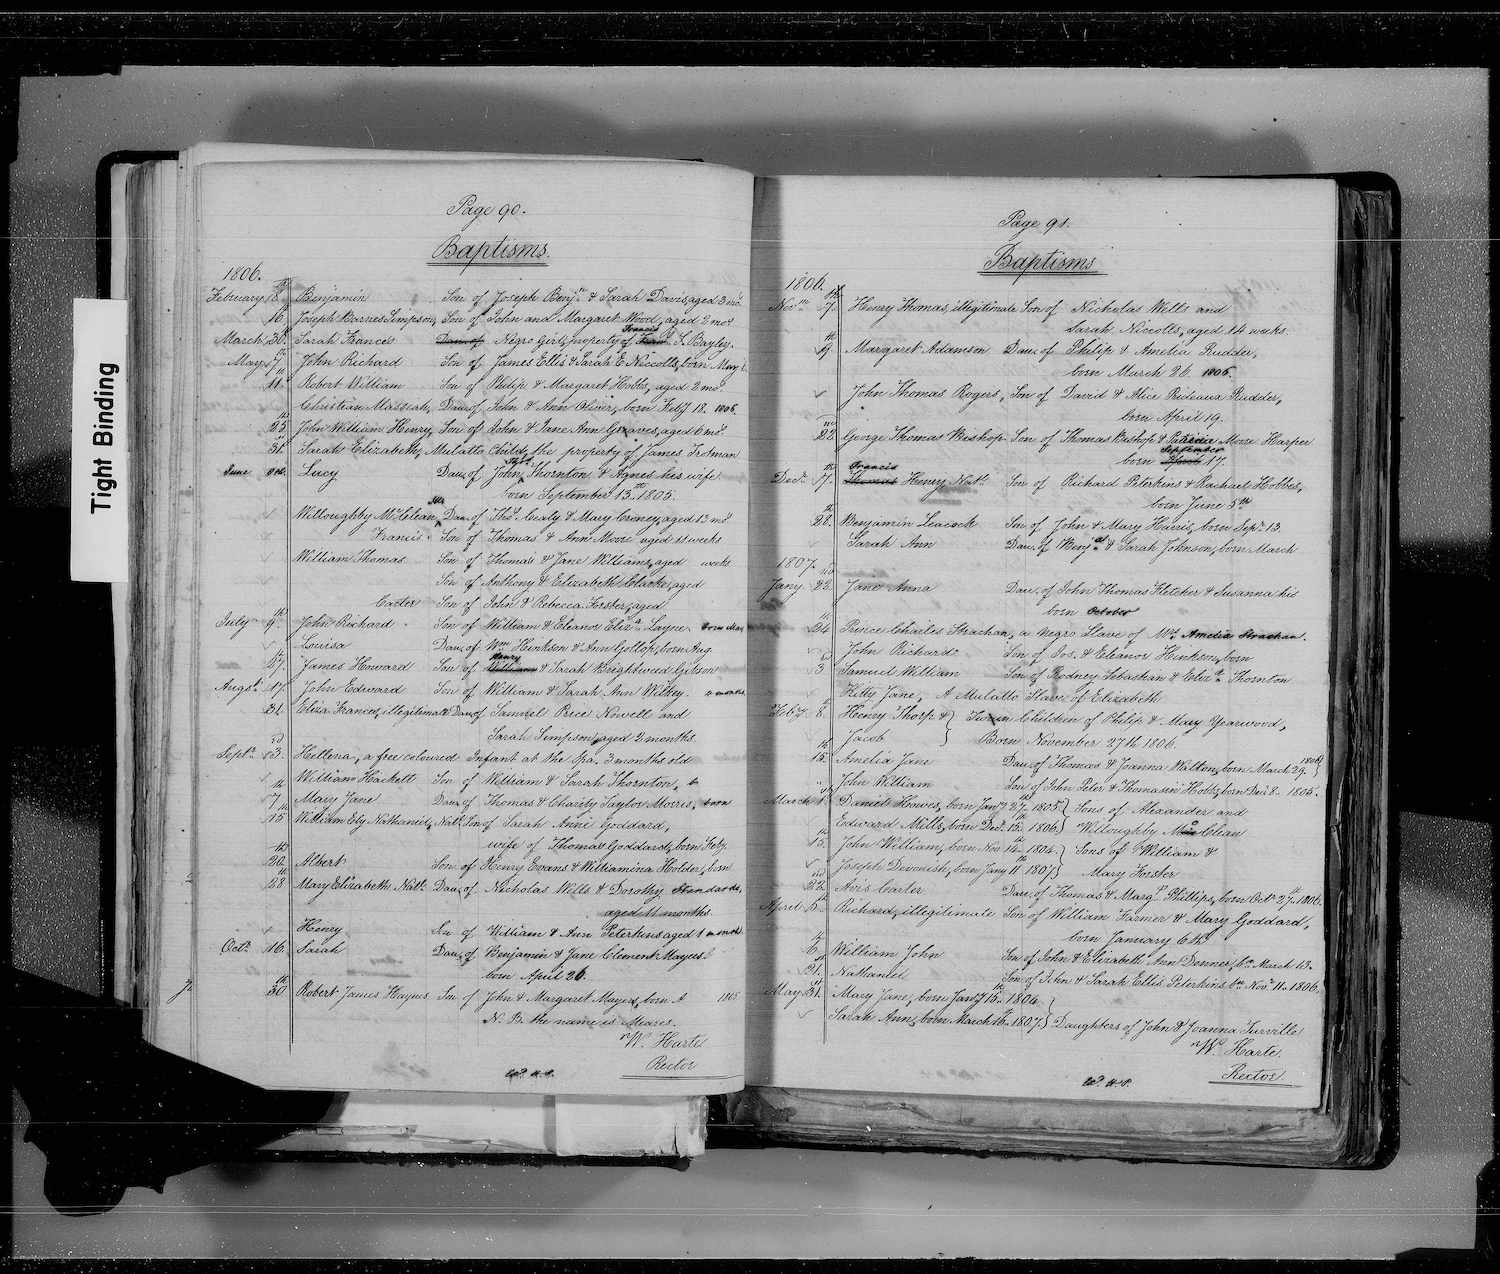 Tight Binding
Page 90.
Baptisms.
1806.
February 8th Benjamin Son of Joseph Benjn & Sarah Davis, aged 3 mos.
16 Joseph Barnes Simpson, Son of John and Margaret Wood, aged 2 mos
March 30 Sarah Frances Dau of Negro Girl, property of Francis S. Bayley.
May 7th John Richard Son of James Ellis & Sarah E Niccolls, born May
11 Robert William Son of Philip & Margaret Hobbs, aged 2 mos
Christian Massiah, Dau. of John & Ann Oliver, born Feby 18. 1806.
25th John William Henry, Son of John & Jane Ann Greaves, aged 6 mos.
31 Sarah Elizabeth, Mulatto Child, the property of James Trotman
June Lucy Dau. of John Thos. Thornton & Agnes his wife
born September 13th 1805.
Willoughby McClean, Dau. of Thos. Crony & Mary Croney, aged 13 mos.
Francis Son of Thomas & Ann Moore aged 11 weeks
William Thomas Son of Thomas & Jane Williams, aged weeks
Son of Anthony & Elizabeth Clarke, aged
Carter Son of John & Rebecca Forster, aged
July 9th John Richard Son of William & Eleanor Elizth Layne. born May
Louisa Dau. of Wm Hinkson & Ann Gollop, born Aug.
27th James Howard Son of Henry William & Sarah Brightweed Gibson
Augst 17. John Edward Son of William & Sarah Ann Wilkey. months
31 Eliza Frances, illegitimate Dau. of Samuel Price Nowell and
Sarah Simpson, aged 2 months.
Septr 3rd. Hellena, a free coloured Infant at the Spa, 3 months old
William Hackett Son of William & Sarah Thornton, b
7th Mary Jane Dau. of Thomas & Charity Taylor Morris, born
15th William Ely Nathaniel, Natl. Son of Sarah Anne Goddard,
wife of Thomas Goddard, born Feby.
20th Albert Son of Henry Evans & Williamina Holder, born
28th Mary Elizabeth Natl. Dau. of Nicholas Wills & Dorothy Standards,
aged 11 months.
Henry Son of William & Ann Peterkins aged 1 month
Octr 16. Sarah Dau. of Benjamin & Jane Clement Mayers
born April 26.
30th Robert James Haynes Son of John & Margaret Mayers, born A 1805
N. B. the name is Meares.
W. Harte
Rector
Page 91.
Baptisms
1806.
Novr 7th Henry Thomas, illegitimate Son of Nicholas Wells and
Sarah Niccolls, aged 14 weeks
9th Margaret Adamson Dau. of Philip & Amelia Rudder,
born March 26 1806.
John Thomas Rogers, Son of David & Alice Prideaux Rudder,
born April 19.
23rd George Thomas Bishop Son of Thomas Bishop & Patience Moore Harper
born September 17.
Decr 7th Francis Thomas Henry Natl. Son of Richard Peterkins & Rachael Hobbes,
born June 5th
28th Benjamin Leacock Son of John & Mary Harris, born Septr. 13.
Sarah Ann Dau. of Benjn & Sarah Johnson, born March
1807.
Jany. 22nd Jane Anna Dau. of John Thomas Fletcher & Susanna his
born October
24th Prince Charles Strachan, a negro Slave of Mrs. Amelia Strachan.
John Richard Son of Jos. & Eleanor Hinkson, born
3rd Samuel William Son of Rodney Sebastian & Elizth Thornton
Kitty Jane, A Mulatto Slave of Elizabeth
Feby. 8. Henry Thorp & } Twin Children of Philip & Mary Yearwood,
Jacob } Born November 27th 1806.
15th Amelia Jane Dau. of Thomas & Joanna Walton, born March 29. 1806
John William Son of John Peter & Thomasin Hobbs, born Decr 8. 1805.
March 1st Daniel Howes, born Jany 27th 1805 } Sons of Alexander and
Edward Mills, born Decr. 15th. 1806 } Willoughby McClean
15th. John William, born Nov 14 1804. } Sons of William &
Joseph Devonish, born Jany 11th 1807 } Mary Forster
22nd Avis Carter Dau. of Thomas & Margt Phillips, born Octr 27th 1806.
April 5th Richard, illegitimate Son of William Farmer & Mary Goddard,
born January 6th
6th William John Son of John & Elizabeth Ann Donner, bn March 13.
21st. Nathaniel Son of John & Sarah Ellis Peterkins bn Novr 11. 1806.
May 31st. Mary Jane, born Jany 15th 1804. }
Sarah Ann, born March 16th 1807. } Daughters of John & Joanna Turville
W. Harte.
Rector